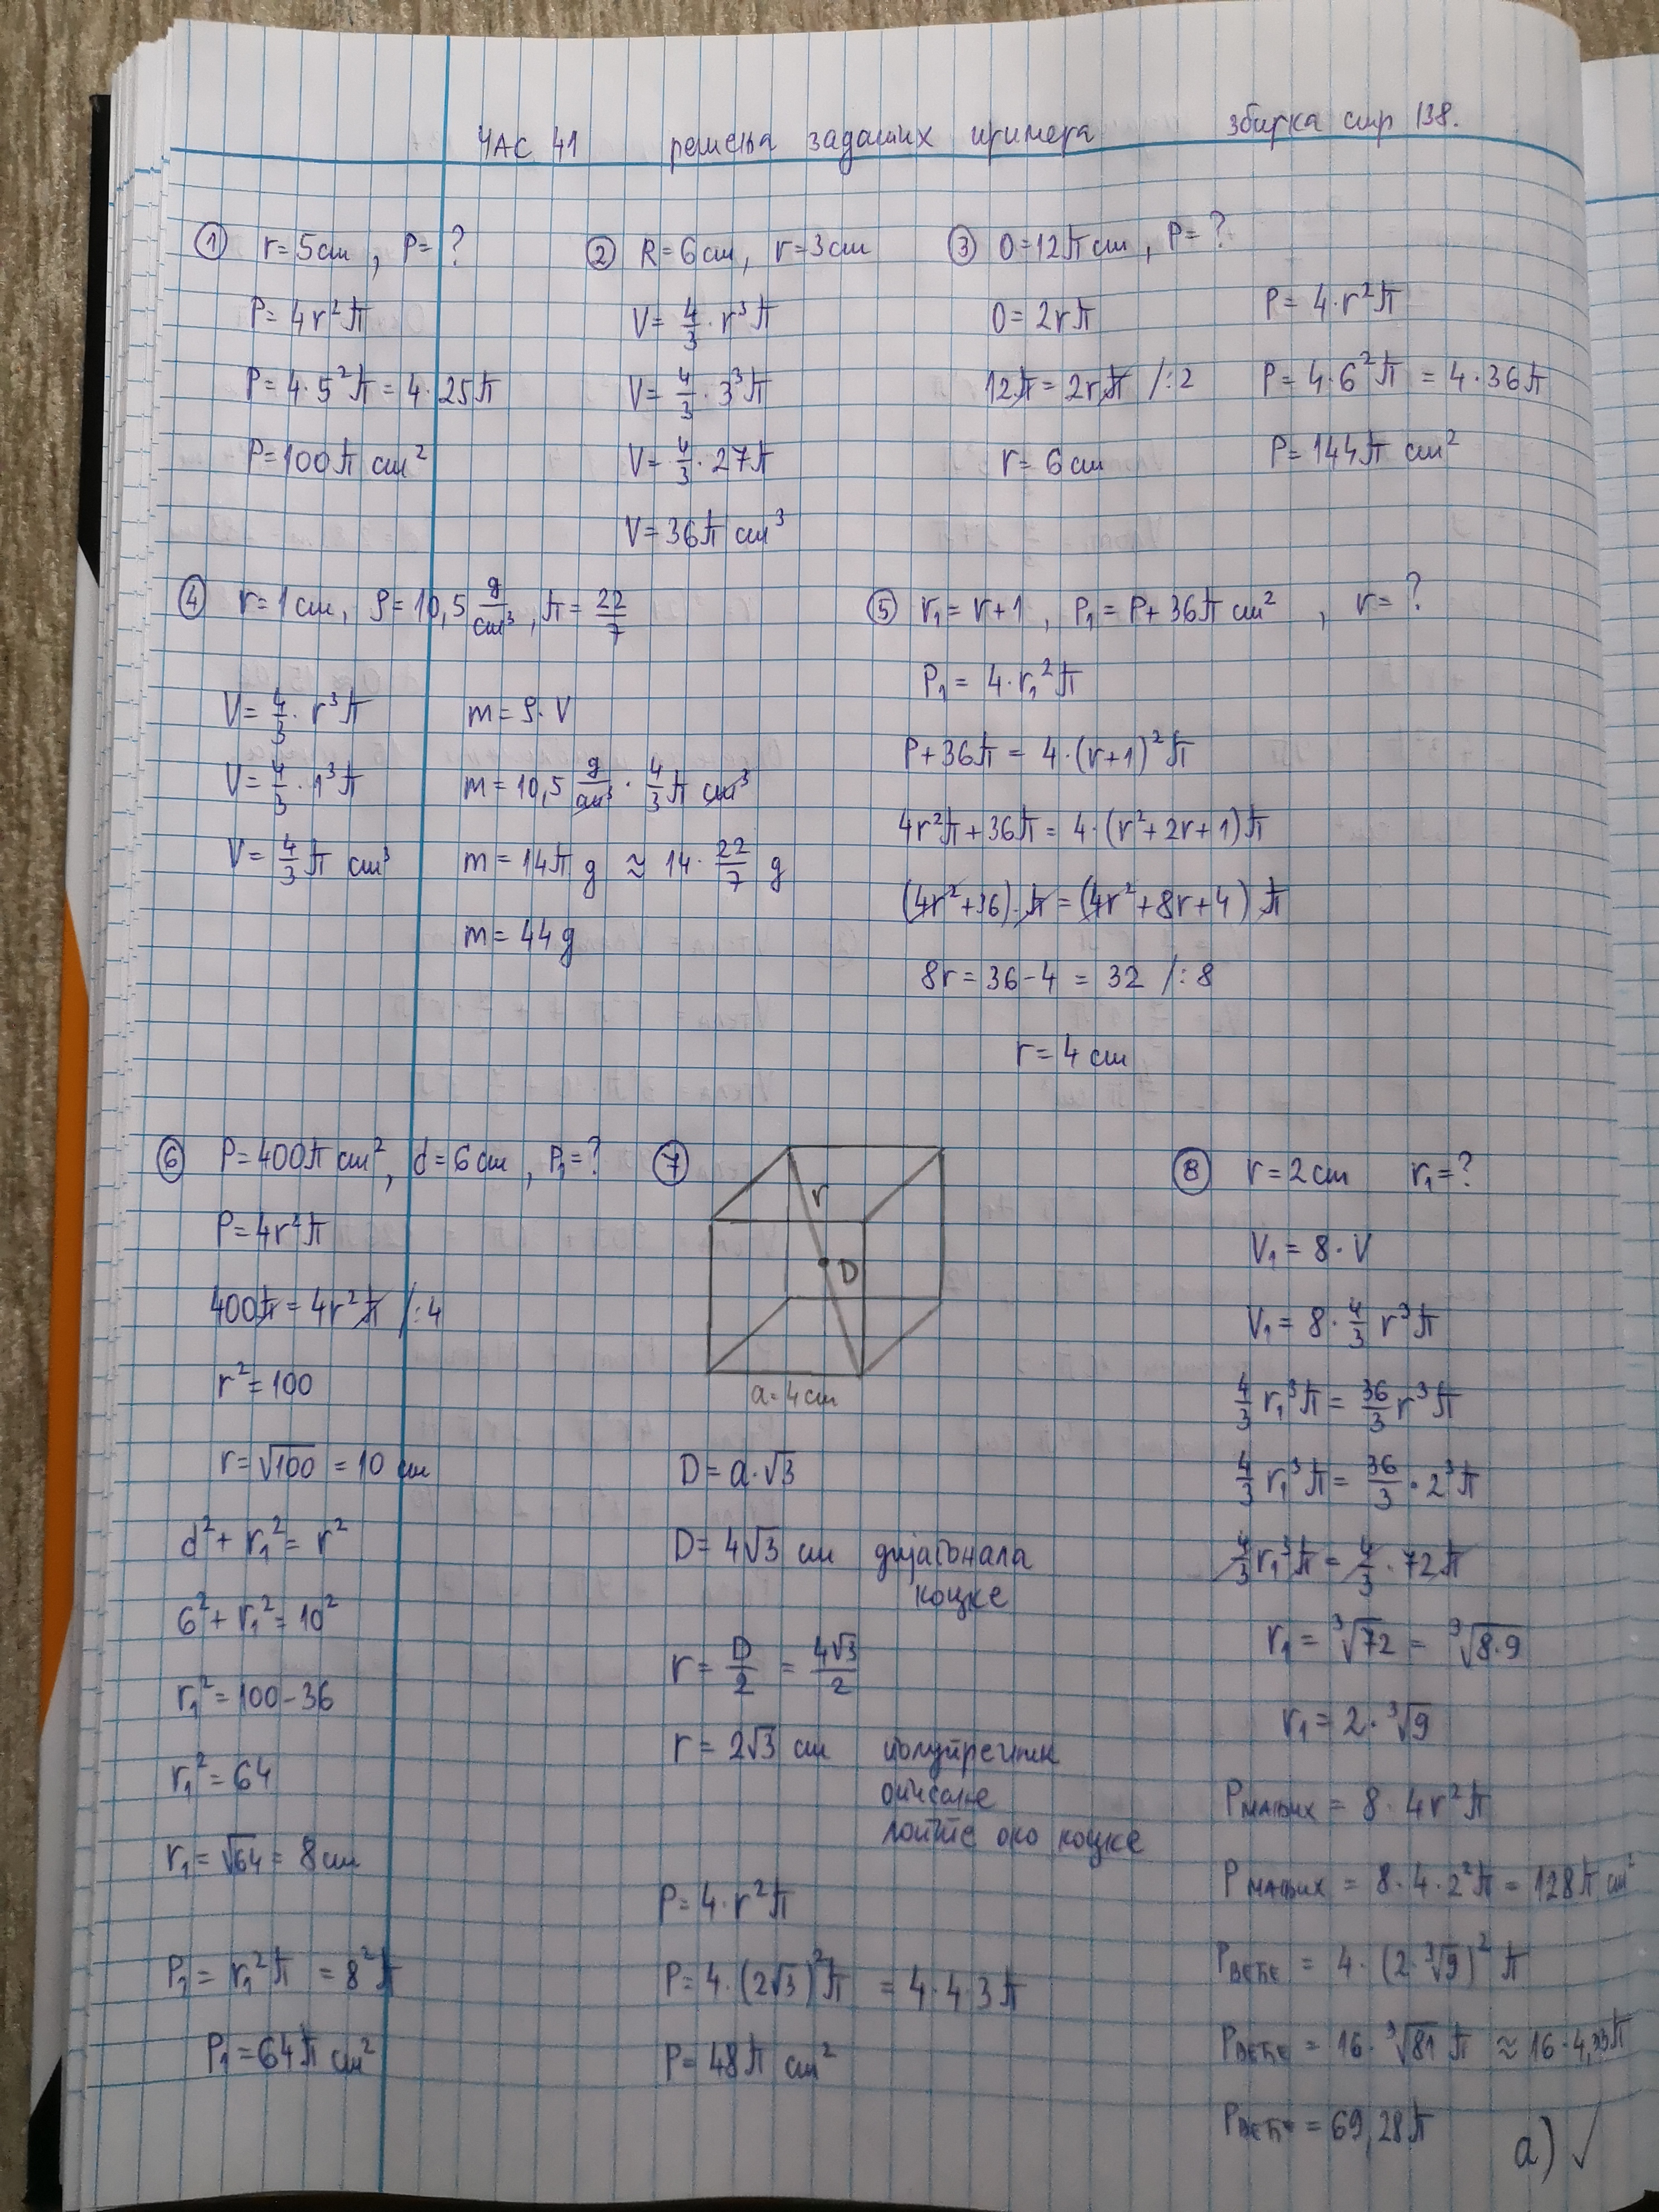 ЧАС 41 решења задатих примера збирка стр 138.
① r=5cm, P=?
P=4r²π
P=4·5²π=4·25π
P=100π cm²
② R=6cm, r=3cm
V=4/3·r³π
V=4/3·3³π
V=4/3·27π
V=36π cm³
③ O=12π cm, P=?
O=2rπ
12π=2rπ /:2
r=6cm
P=4·r²π
P=4·6²π=4·36π
P=144π cm²
④ r=1cm, ρ=10,5 g/cm³, π=22/7
V=4/3·r³π
V=4/3·1³π
V=4/3π cm³
m=ρ·V
m=10,5 g/cm³·4/3π cm³
m=14π g ≈ 14·22/7 g
m=44g
⑤ r₁=r+1, P₁=P+36π cm², r=?
P₁=4·r₁²π
P+36π=4·(r+1)²π
4r²π+36π=4·(r²+2r+1)π
(4r²+36)·π=(4r²+8r+4)π
8r=36-4=32 /:8
r=4cm
⑥ P=400π cm², d=6cm, P₁=?
P=4r²π
400π=4r²π /:4
r²=100
r=√100=10 cm
d²+r₁²=r²
6²+r₁²=10²
r₁²=100-36
r₁²=64
r₁=√64=8cm
P₁=r₁²π=8²π
P₁=64π cm²
⑦
r
D
a=4cm
D=a·√3
D=4√3 cm дијагонала
коцке
r=D/2=4√3/2
r=2√3 cm полупречник
описане
лопте око коцке
P=4·r²π
P=4·(2√3)²π=4·4·3π
P=48π cm²
⑧ r=2cm r₁=?
V₁=8·V
V₁=8·4/3 r³π
4/3 r₁³π=36/3 r³π
4/3 r₁³π=36/3·2³π
4/3 r₁³π=4/3·72π
r₁=³√72=³√8·9
r₁=2·³√9
Pмањих=8·4r²π
Pмањих=8·4·2²π=128π cm²
Pвеће=4·(2·³√9)²π
Pвеће=16·³√81 π≈16·4,33π
Pвеће=69,28π
а) ✓